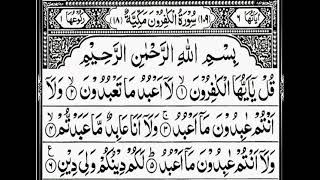 اٰيَاتُهَا ٦ (١٠٩) سُوْرَةُ الْكٰفِرُوْنَ مَكِّيَّةٌ (١٨) رُكُوْعُهَا ١
بِسْمِ اللّٰهِ الرَّحْمٰنِ الرَّحِيْمِ
قُلْ يٰۤاَيُّهَا الْكٰفِرُوْنَ ١ لَاۤ اَعْبُدُ مَا تَعْبُدُوْنَ ٢ وَلَاۤ
اَنْتُمْ عٰبِدُوْنَ مَاۤ اَعْبُدُ ٣ وَلَاۤ اَنَا عَابِدٌ مَّا عَبَدْتُّمْ ٤
وَلَاۤ اَنْتُمْ عٰبِدُوْنَ مَاۤ اَعْبُدُ ٥ لَكُمْ دِيْنُكُمْ وَلِيَ دِيْنِ ٦